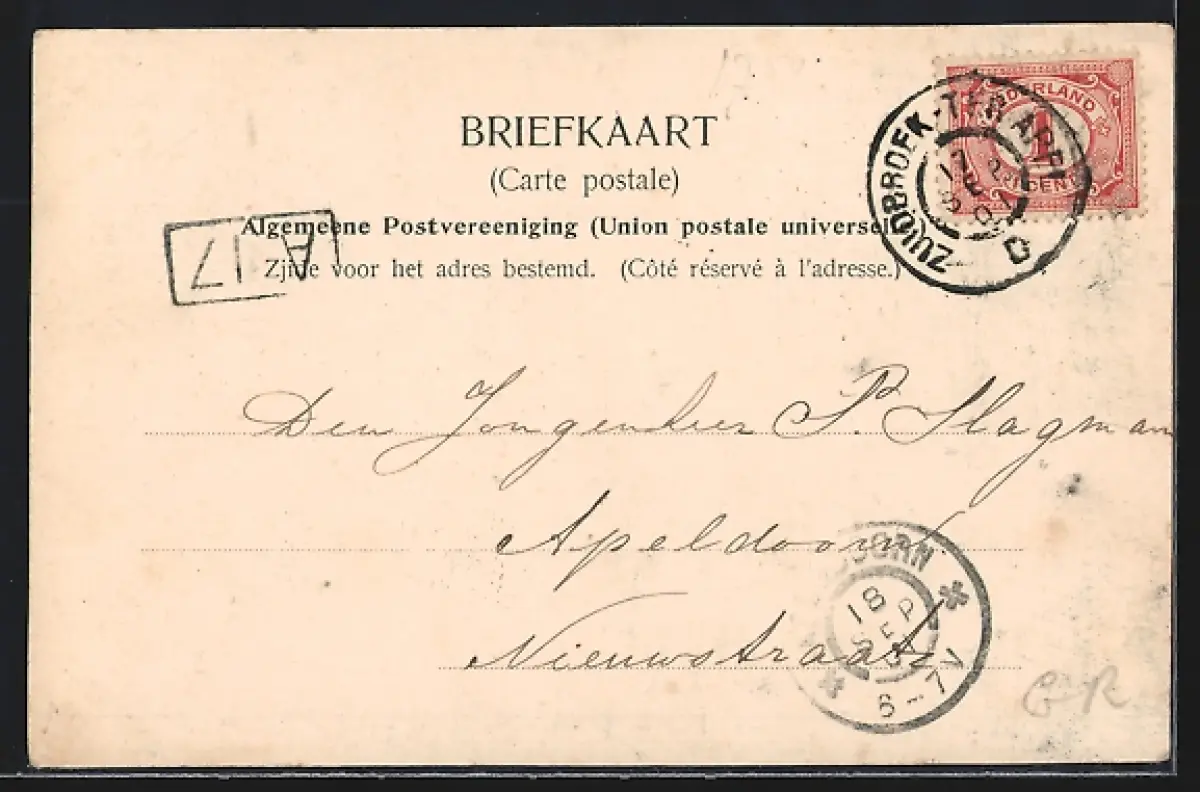 BRIEFKAART
(Carte postale)
Algemeene Postvereeniging (Union postale universelle)
Zijde voor het adres bestemd. (Côté réservé à l'adresse.)
NEDERLAND
1
CENT
ZUIDBROEK-TER APEL
D
A 17
Den Jongenheer P. Slagman
Apeldoorn
Nieuwstraat
DOORN
18
SEP
6-7V
GR